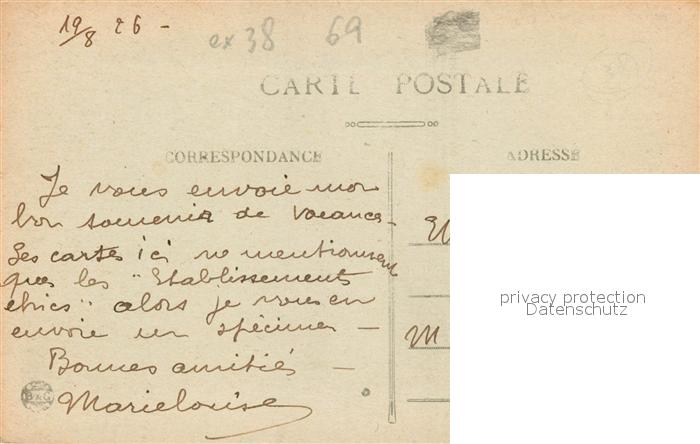 19/8 26 -
ex 38 69
CARTE POSTALE
CORRESPONDANCE
ADRESSE
Je vous envoie mon
bon souvenir de vacances -
Les cartes ici ne mentionnent
que les "Etablissements
chics" alors je vous en
envoie un spécimen -
Bonnes amitiés -
Marielouise
B & G
M
privacy protection
Datenschutz